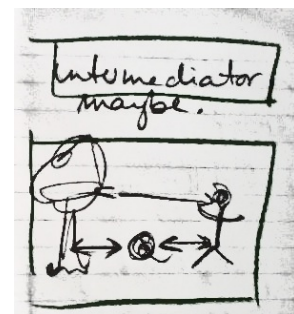 intermediator
maybe.